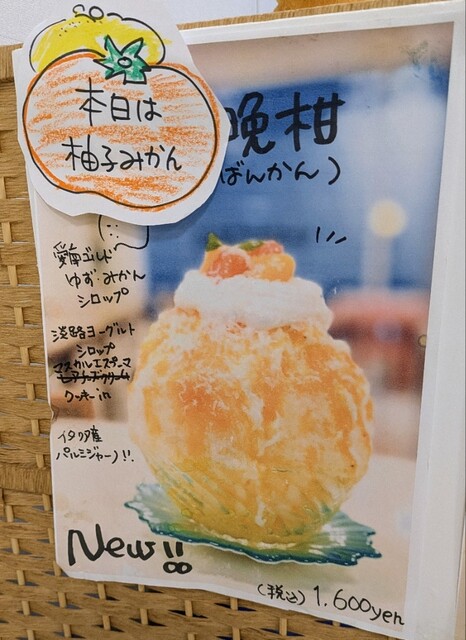 本日は
柚子みかん
晩柑
ばんかん)
愛南ゴールド
ゆず・みかん
シロップ
淡路ヨーグルト
シロップ
マスカルエスプーマ
クッキー in
イタリア産
パルミジャーノ!!
New!!
(税込) 1.600yen